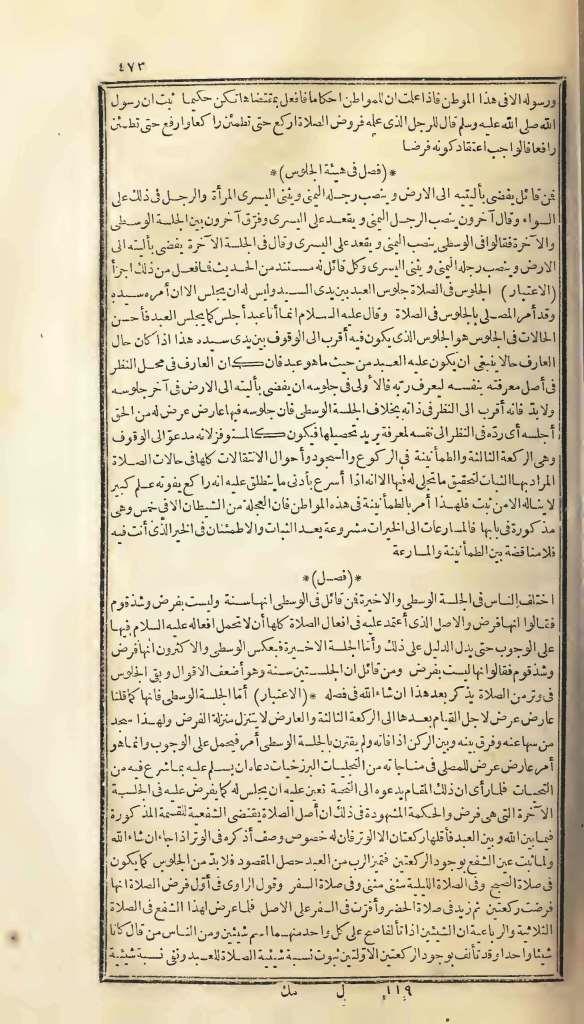 ٤٧٣
ورسوله الا فى هذا الموطن فاذا علمت ان للمواطن احكاما فافعل بمقتضاها تكن حكيما ثبت ان رسول
الله صلى الله عليه وسلم قال للرجل الذى علمه فروض الصلاة اركع حتى تطمئن راكعا وارفع حتى تطمئن
رافعا فالواجب اعتقاد كونه فرضا
*(فصل فى هيئة الجلوس)*
فمن قائل يفضى بأليتيه الى الارض وينصب رجله اليمنى ويثنى اليسرى المرأة والرجل فى ذلك على
السواء وقال آخرون ينصب الرجل اليمنى ويقعد على اليسرى وفرق آخرون بين الجلسة الوسطى
والآخرة فقالوا فى الوسطى ينصب اليمنى ويقعد على اليسرى وقال فى الجلسة الآخرة يفضى بأليته الى
الارض وينصب رجله اليمنى ويثنى اليسرى وكل قائل له مستند من الحديث فما فعل من ذلك اجزأ
(الاعتبار) الجلوس فى الصلاة جلوس العبد بين يدى السيد وليس له ان يجلس الا ان أمره سيده
وقد أمر المصلى بالجلوس فى الصلاة وقال عليه السلام انما أنا عبد أجلس كما يجلس العبد فأحسن
الحالات فى الجلوس هو الجلوس الذى يكون فيه أقرب الى الوقوف بين يدى سيده هذا اذا كان حال
العارف حالا ينبغى ان يكون عليه العبد من حيث ما هو عبد فان كان العارف فى محل النظر
فى أصل معرفته بنفسه ليعرف ربه فالأولى فى جلوسه ان يفضى بأليته الى الارض فى آخر جلوسه
ولا بد فانه أقرب الى النظر فى ذاته بخلاف الجلسة الوسطى فان جلوسه فيها عارض عرض له من الحق
أجلسه أى رده فى النظر الى نفسه لمعرفة يريد تحصيلها فيكون كالمستوفز لانه مدعو الى الوقوف
وهى الركعة الثالثة والطمأنينة فى الركوع والسجود وأحوال الانتقالات كلها فى حالات الصلاة
المراد بها الثبات لتحقيق ما يتجلى له فيها لانه اذا أسرع بأدنى ما ينطلق عليه انه راكع يفوته علم كبير
لا يناله الا من ثبت فلهذا أمر بالطمأنينة فى هذه المواطن فان العجلة من الشيطان الا فى خمس وهى
مذكورة فى بابها فالمسارعات الى الخيرات مشروعة بعد الثبات والاطمئنان فى الخير الذى أنت فيه
فلا مناقضة بين الطمأنينة والمسارعة
*(فصل)*
اختلف الناس فى الجلسة الوسطى والاخيرة فمن قائل فى الوسطى انها سنة وليست بفرض وشذ قوم
فقالوا انها فرض والاصل الذى أعتمد عليه فى افعال الصلاة كلها أن لا تحمل افعاله عليه السلام فيها
على الوجوب حتى يدل الدليل على ذلك وأما الجلسة الاخيرة فبعكس الوسطى والاكثرون انها فرض
وشذ قوم فقالوا انها ليست بفرض ومن قائل ان الجلستين سنة وهو أضعف الاقوال وبقى الجلوس
فى وتر من الصلاة يذكر بعد هذا ان شاء الله فى فصله *(الاعتبار) أما الجلسة الوسطى فانها كما قلنا
عارض عرض لاجل القيام بعدها الى الركعة الثالثة والعارض لا ينزل منزلة الفرض ولهذا سجد
من سها عنه وفرق بينه وبين الركن اذا فاته ولم يقترن بالجلسة الوسطى أمر فيحمل على الوجوب وانما هو
أمر عارض عرض للمصلى فى مناجاته من التجليات البرزخيات دعاه ان يسلم عليه بما شرع فيه من
التحيات فلما رأى ان ذلك المقام يدعوه الى التحية تعين عليه ان يجلس له كما يفرض عليه فى الجلسة
الآخرة التى هى فرض والحكمة المشهودة فى ذلك ان أصل الصلاة يقتضى الشفعية للقسمة المذكورة
فيها بين الله وبين العبد فأقلها ركعتان الا الوتر فان له خصوص وصف أذكره فى الوتر اذا جاء ان شاء الله
ولما ثبت عين الشفع بوجود الركعتين فتميز الرب من العبد حصل المقصود فلا بد من الجلوس كما يكون
فى صلاة الصبح وفى الصلاة الليلية مثنى مثنى وفى صلاة السفر وقول الراوى فى أول فرض الصلاة انها
فرضت ركعتين ثم زيد فى صلاة الحضر وأقرت فى السفر على الاصل فلما عرض لهذا الشفع فى الصلاة
الثلاثية والرباعية ان الشيئين اذا تألفا صح على كل واحد منهما اسم شيئين ومن الناس من قال كانا
شيئا واحدا وقد تألف بوجود الركعتين الاولتين ثبوت نسبة شيئية الصلاة للعبد ونفى نسبة شيئية
١١٩ ل مك